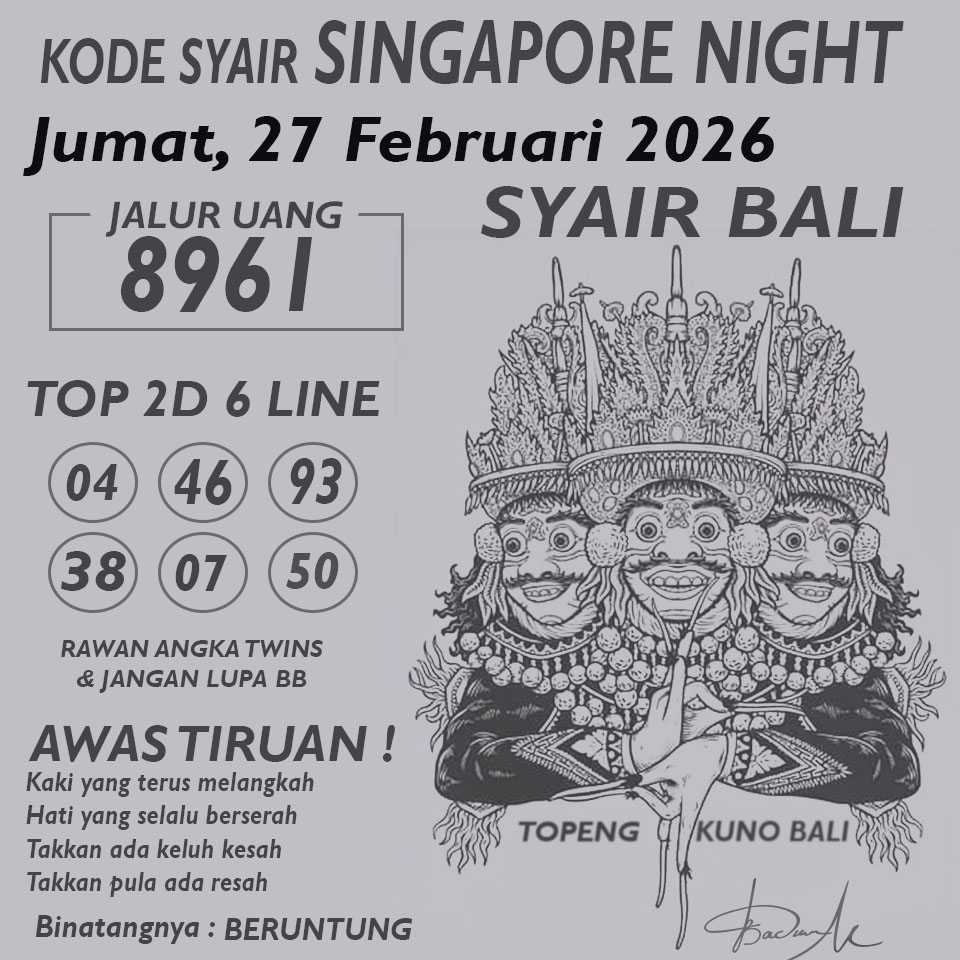 KODE SYAIR SINGAPORE NIGHT
Jumat, 27 Februari 2026
SYAIR BALI
JALUR UANG
8961
TOP 2D 6 LINE
04 46 93
38 07 50
RAWAN ANGKA TWINS
& JANGAN LUPA BB
AWAS TIRUAN !
Kaki yang terus melangkah
Hati yang selalu berserah
Takkan ada keluh kesah
Takkan pula ada resah
Binatangnya : BERUNTUNG
TOPENG KUNO BALI